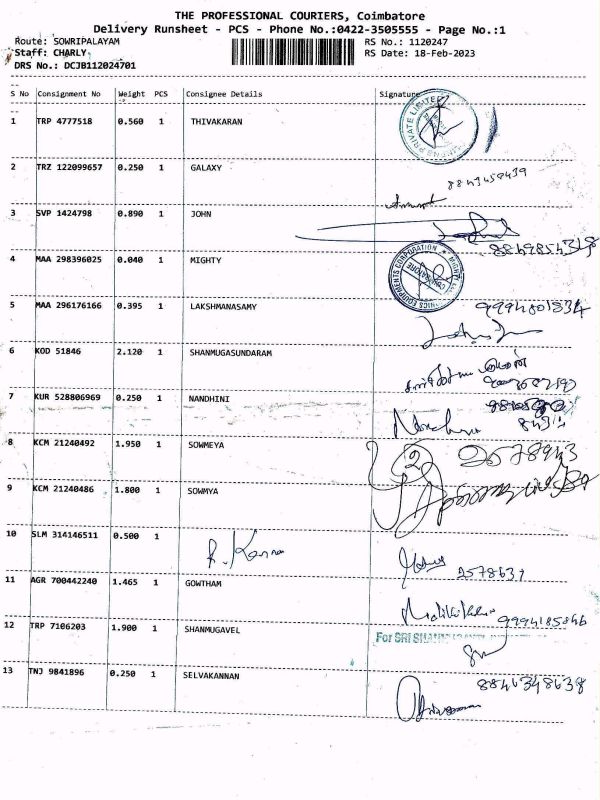 THE PROFESSIONAL COURIERS, Coimbatore
Delivery Runsheet - PCS - Phone No.:0422-3505555 - Page No.:1
Route: SOWRIPALAYAM RS No.: 1120247
Staff: CHARLY RS Date: 18-Feb-2023
DRS No.: DCJB112024701
S No Consignment No Weight PCS Consignee Details Signature
1 TRP 4777518 0.560 1 THIVAKARAN
PRIVATE LIMITED
2 TRZ 122099657 0.250 1 GALAXY
3 SVP 1424798 0.890 1 JOHN
4 MAA 298396025 0.040 1 MIGHTY
5 MAA 296176166 0.395 1 LAKSHMANASAMY 9994801834
6 KOD 51846 2.120 1 SHANMUGASUNDARAM
7 KUR 528806969 0.250 1 NANDHINI
8 KCM 21240492 1.950 1 SOWMEYA 2578943
9 KCM 21240486 1.800 1 SOWMYA
10 SLM 314146511 0.500 1
R. Kannan
2578637
11 AGR 700442240 1.465 1 GOWTHAM
9994185846
12 TRP 7106203 1.900 1 SHANMUGAVEL
For SRI
13 TNJ 9841896 0.250 1 SELVAKANNAN 8846348638